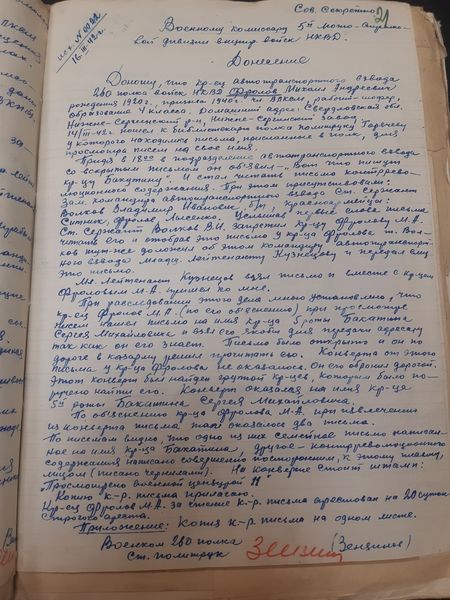 Сов. Секретно
21
исх. № 0092
16.III-42 г.
Военному комиссару 5ой мото-стрелко-
вой дивизии внутр. войск НКВД.
Донесение
Доношу, что кр-ец автотранспортного взвода
260 полка войск НКВД Фролов Михаил Андреевич
рождения 1920 г. призыва 1940 г. чл. ВЛКСМ, рабочий-шофер,
образование 4 класса. Домашний адрес: Свердловская обл.
Нижне-Сергинский р-н, Нижне-Сергинский завод.
14/III-42 г. пошел к библиотекарю полка политруку
у которого находились письма, присланные в полк, для
просмотра писем на свое имя.
Придя в 18 00 в подразделение автотранспортного взвода
со вскрытым письмом он объявил "Вот что пишут
кр-цу Бакатину". И стал читать письмо контррево-
люционного содержания. При этом присутствовали:
Зам. командира автотранспортного взвода Ст. Сержант
Волков Владимир Иванович б/п, красноармейцы:
Ситник, Фролов, Лысенко. Услышав первые слова письма
Ст. Сержант Волков В.И. запретил кр-цу Фролову М.А.
читать его и отобрав это письмо у кр-ца Фролова т. Вол-
ков тут-же доложил об этом командиру автотранспорт-
ного взвода младш. лейтенанту Кузнецову и передал ему
это письмо.
Мл. лейтенант Кузнецов взял письмо и вместе с кр-цом
Фроловым М.А. пришел ко мне.
При расследовании этого дела мною установлено, что
кр-ец Фролов М.А. (по его объяснению) при просмотре
писем нашел письмо на имя кр-ца 5 роты Бакатина
Сергея Михайловича и взял его якобы для передачи адресату
так как он его знает. Письмо было открыто и он по
дороге в казарму решил прочитать его. Конверта от этого
письма у кр-ца Фролова не оказалось. Он его обронил дорогой.
Этот конверт был найден группой кр-цев, которым было по-
ручено найти его. Конверт оказался на имя кр-ца
5ой роты Бакатина, Сергея Михайловича.
По объяснению кр-ца Фролова М.А. при извлечении
из конверта письма там оказалось два письма.
По письмам видно, что одно из них семейное письмо написан-
ное на имя кр-ца Бакатина, другое - контрреволюционного
содержания написано совершенно посторонним, к этому письму,
лицом (писано чернилами). На конверте стоит штамп:
"Просмотрено военной цензурой 11"
Копию к-р. письма прилагаю.
Кр-ец Фролов М.А. за чтение к-р. письма арестован на 20 суток
строгого ареста.
Приложение: Копия к-р письма на одном листе.
Военком 260 полка
Ст. политрук